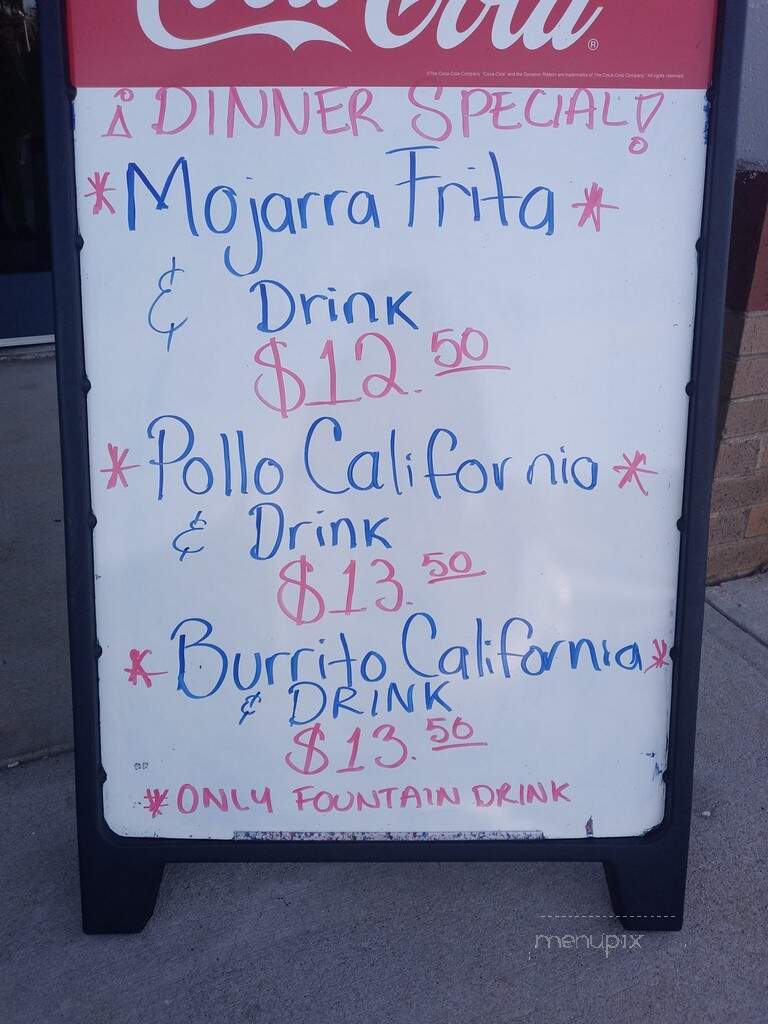 Coca-Cola®
©The Coca-Cola Company. "Coca-Cola" and the Dynamic Ribbon are trademarks of The Coca-Cola Company. All rights reserved.
¡DINNER SPECIAL!
*Mojarra Frita*
& Drink
$12.50
*Pollo California*
& Drink
$13.50
*Burrito California*
& DRINK
$13.50
*ONLY FOUNTAIN DRINK
menupix